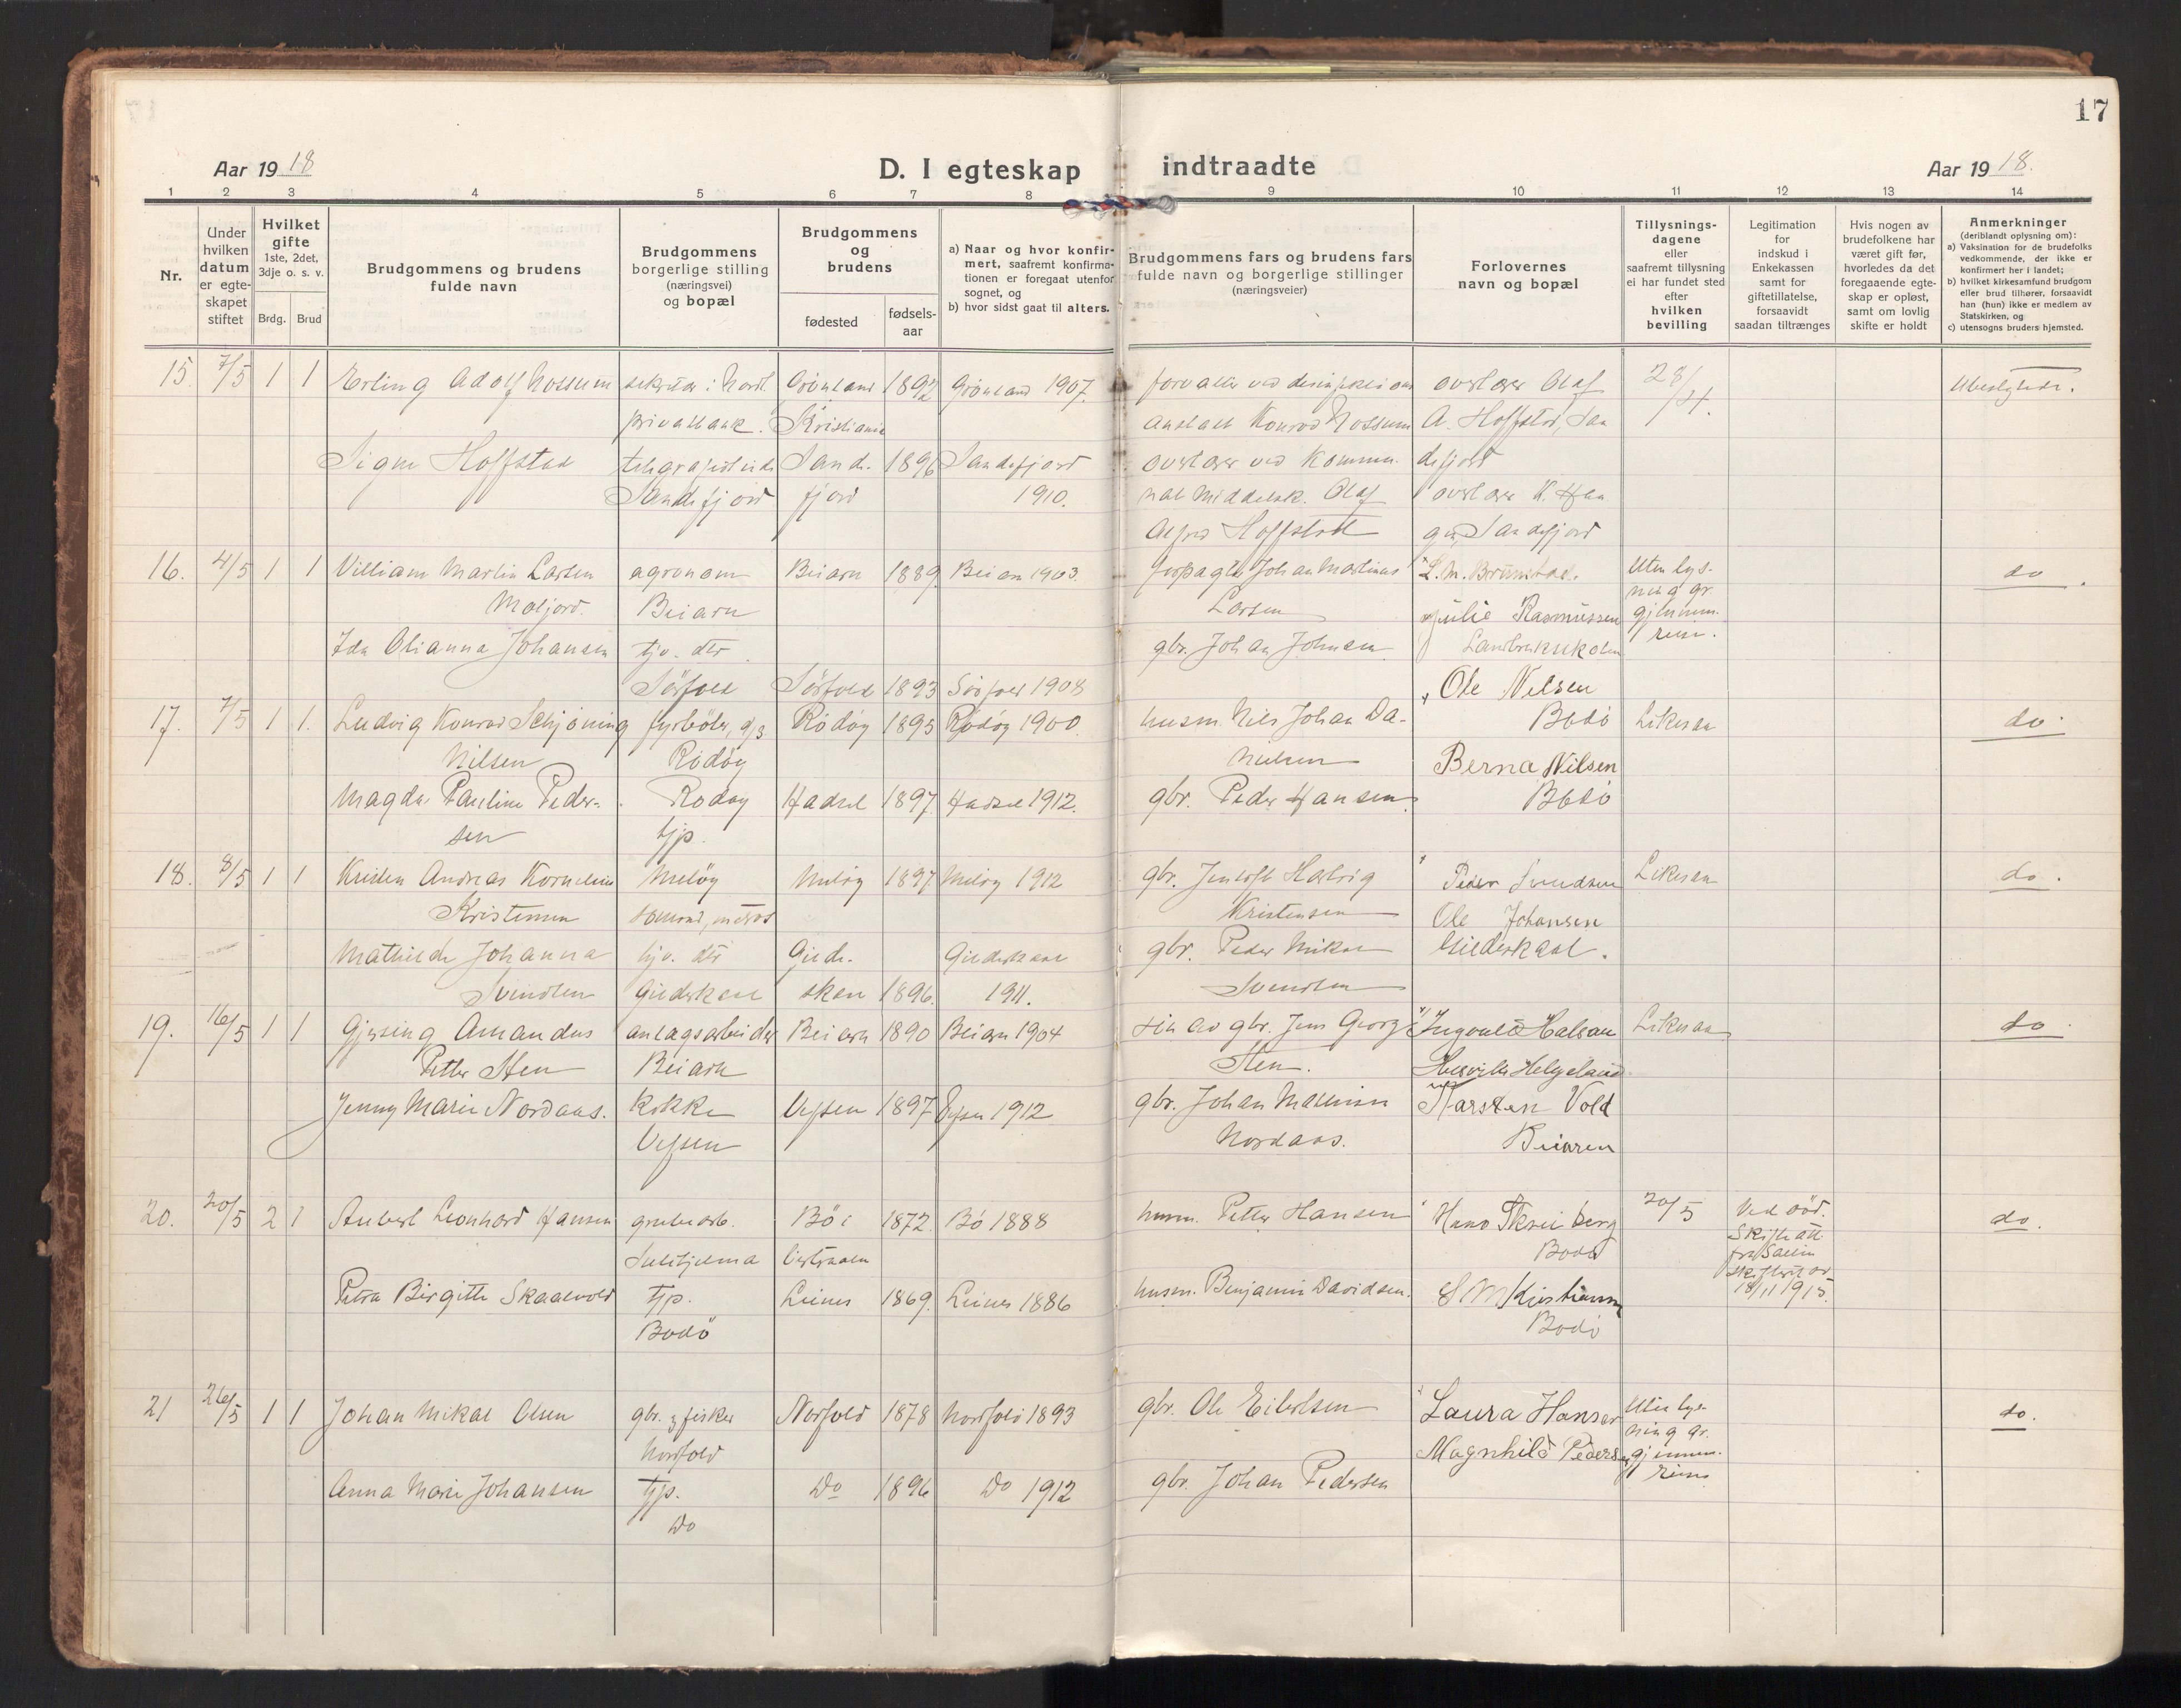 17
Aar 1918
D. I egteskap indtraadte
Aar 1918.
1 2 3 4 5 6 7 8 9 10 11 12 13 14
Nr.
Under
hvilken
datum
er egte-
skapet
stiftet
Hvilket
gifte
1ste, 2det,
3dje o. s. v.
Brdg. Brud
Brudgommens og brudens
fulde navn
Brudgommens
borgerlige stilling
(næringsvei)
og bopæl
Brudgommens
og
brudens
fødested
fødsels-
aar
a) Naar og hvor konfir-
mert, saafremt konfirma-
tionen er foregaat utenfor
sognet, og
b) hvor sidst gaat til alters.
Brudgommens fars og brudens fars
fulde navn og borgerlige stillinger
(næringsveier)
Forlovernes
navn og bopæl
Tillysnings-
dagene
eller
saafremt tillysning
ei har fundet sted
efter
hvilken
bevilling
Legitimation
for
indskud i
Enkekassen
samt for
giftetillatelse,
forsaavidt
saadan tiltrænges
Hvis nogen av
brudefolkene har
været gift før,
hvorledes da det
foregaaende egte-
skap er opløst,
samt om lovlig
skifte er holdt
Anmerkninger
(deriblandt oplysning om):
a) Vaksination for de brudefolks
vedkommende, der ikke er
konfirmert her i landet;
b) hvilket kirkesamfund brudgom
eller brud tilhører, forsaavidt
han (hun) ikke er medlem av
Statskirken, og
c) utensogns bruders hjemsted.
15. 7/5 1 1 Erling Adolf Nossum
Grönland 1892 Grönland 1907.
privatbank. Kristiania
Signe Hoffstad
Sande- 1896 Sandefjord
Sandefjord fjord 1910.
anstalt Konrad Nossum
overlærer ved kommu-
nal middelsk. Olaf
Alfred Hoffstad
overlærer Olaf
A. Hoffstad, San
defjord
overlærer K. Hau
ge, Sandefjord
28/4.
Ubeslegtede.
16. 4/5 1 1 Villiam Martin Larsen agronom Beiarn 1889. Beiarn 1903.
Moljord. Beiarn
Ida Olianna Johansen tjv. dtr
Sörfold Sörfold 1893 Sörfold 1908
Johan Martinus
Larsen
gbr. Johan Johnsen
Julie Rasmussen
Uten lys-
ning gr.
do.
17. 7/5 1 1. Ludvig Konrad Schjöning fyrböter, d/s Rödöy 1895 Rödöy 1900.
Nilsen Rödöy
Magda Pauline Peder- Rödöy Hadsel 1897 Hadsel 1912.
sen tjp.
husm. Nils Johan Da-
nielsen
gbr. Peder Hansen
Ole Nilsen
Bodö
Berna Nilsen
Bodö
Likesaa
do.
18. 8/5 1 1 Kristen Andreas Kornelius Melöy Melöy 1897 Melöy 1912
Kristensen
Mathilde Johanna tjv. dtr Gilde- Gildeskaal
Svendsen Gildeskaal skaal 1896. 1911.
gbr. Hartvig
Kristensen
gbr. Peder Mikal
Svendsen
Peder Svendsen
Ole Johansen
Gildeskaal.
Likesaa
do.
19. 16/5 1 1 Gjersing Amandus anlægsarbeider Beiarn 1890 Beiarn 1904
Petter Sten Beiarn
Jenny Marie Nordaas. kokke Vefsen 1897 Vefsen 1912
Vefsen
gbr. Jens Georg
Sten.
gbr. Johan
Nordaas.
Helgeland
Karsten Vold
Beiaren
Likesaa
do.
20. 20/5 2 1 Leonhard Hansen grubearb. Bö i 1872. Bö 1888
Sulitjelma Vesteraalen
Petra Birgitte Skaalvold tjp. Leines 1869. Leines 1886
Bodö
husm. Petter Hansen
husm. Benjamin Davidsen.
Bodö
S M Kristiansen
Bodö
20/5
Ved död.
Skifteatt.
fra Salten
18/11 1915.
do.
21 26/5 1 1 Johan Mikal Olsen gbr. & fisker Norfold 1878 Norfold 1893
Norfold
Anna Marie Johansen tjp. Do 1896 Do 1912
Do
gbr. Ole Eilertsen
gbr. Johan Pedersen
Laura Hansen
Magnhild Pedersen
Uten lys-
ning gr.
do.